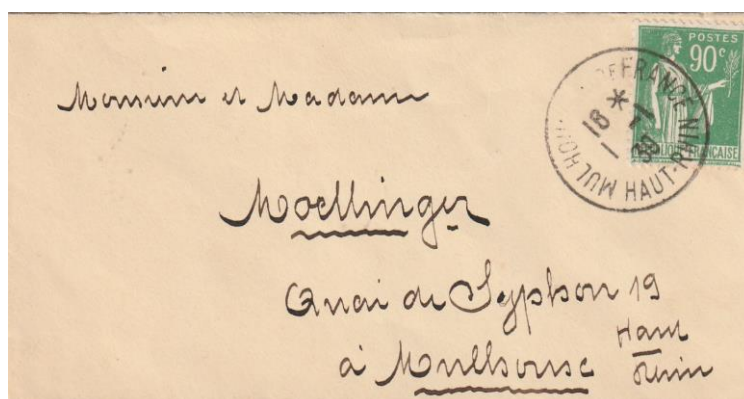 POSTES
90c
DE FRANCE
18 * -1
1 39
MULHOUSE HAUT-RHIN
FRANÇAISE
Monsieur et Madame
Moellinger
Quai du Syphon 19
à Mulhouse Haut
Rhin